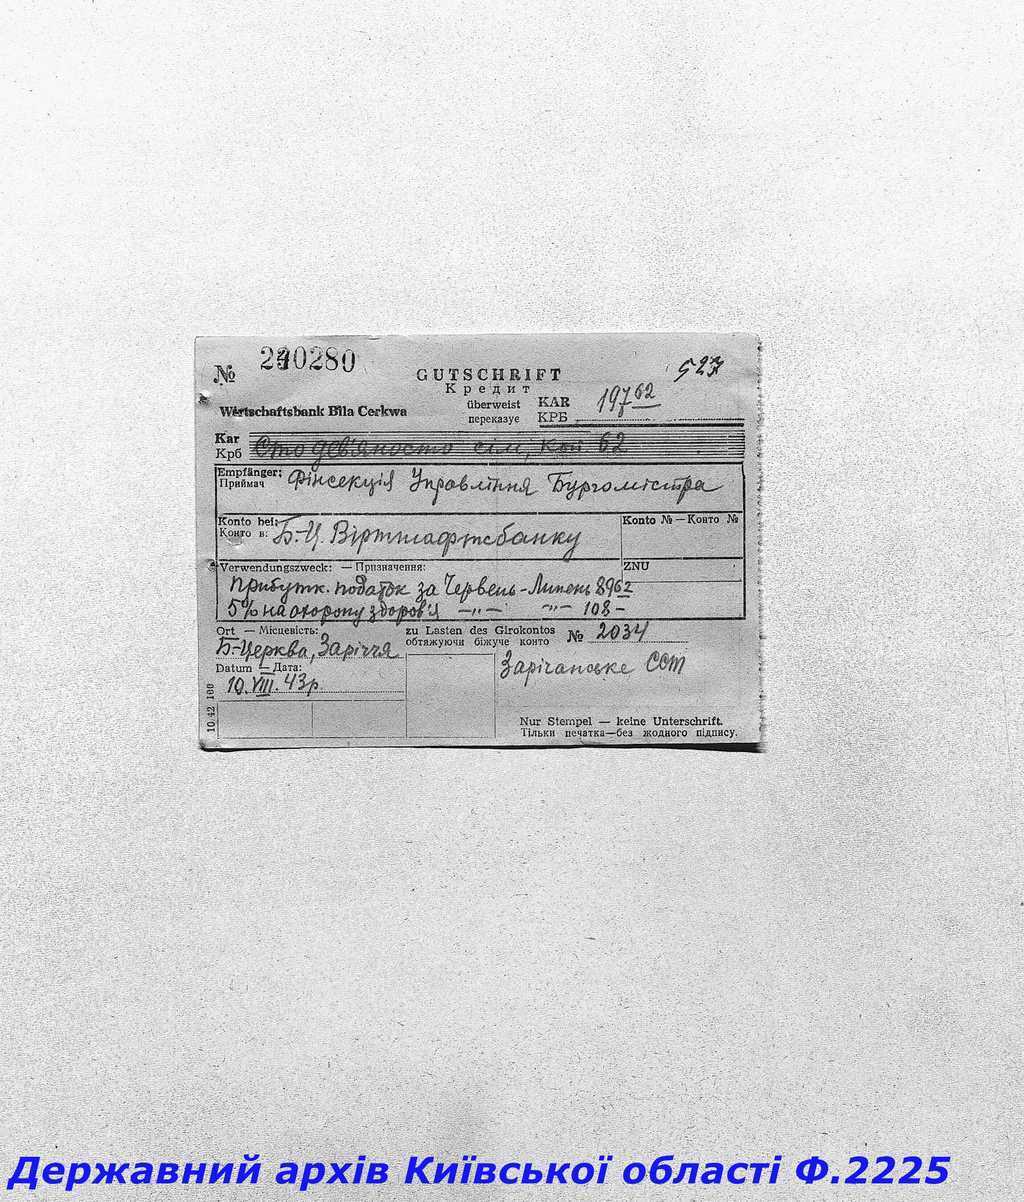 № 240280
GUTSCHRIFT
Кредит
527
Wirtschaftsbank Bila Cerkwa
überweist KAR 197 62
переказує КРБ
Kar
Крб Сто дев'яносто сім, коп 62
Empfänger:
Приймач Фінсекція Управління Бургомістра
Konto bei: Konto № — Конто №
Конто в: Б-Ц. Віртшафтсбанку
Verwendungszweck: — Призначення: ZNU
Прибутк. податок за Червень-Липень 89 62
5% на охорону здоров'я —"— —"— 108 –
Ort — Місцевість: zu Lasten des Girokontos № 2034
Б-Церква, Заріччя обтяжуючи біжуче конто
Datum — Дата: Зарічанське ССТ
10.VIII.43р.
10.42 100
Nur Stempel — keine Unterschrift.
Тільки печатка—без жодного підпису.
Державний архів Київської області Ф.2225